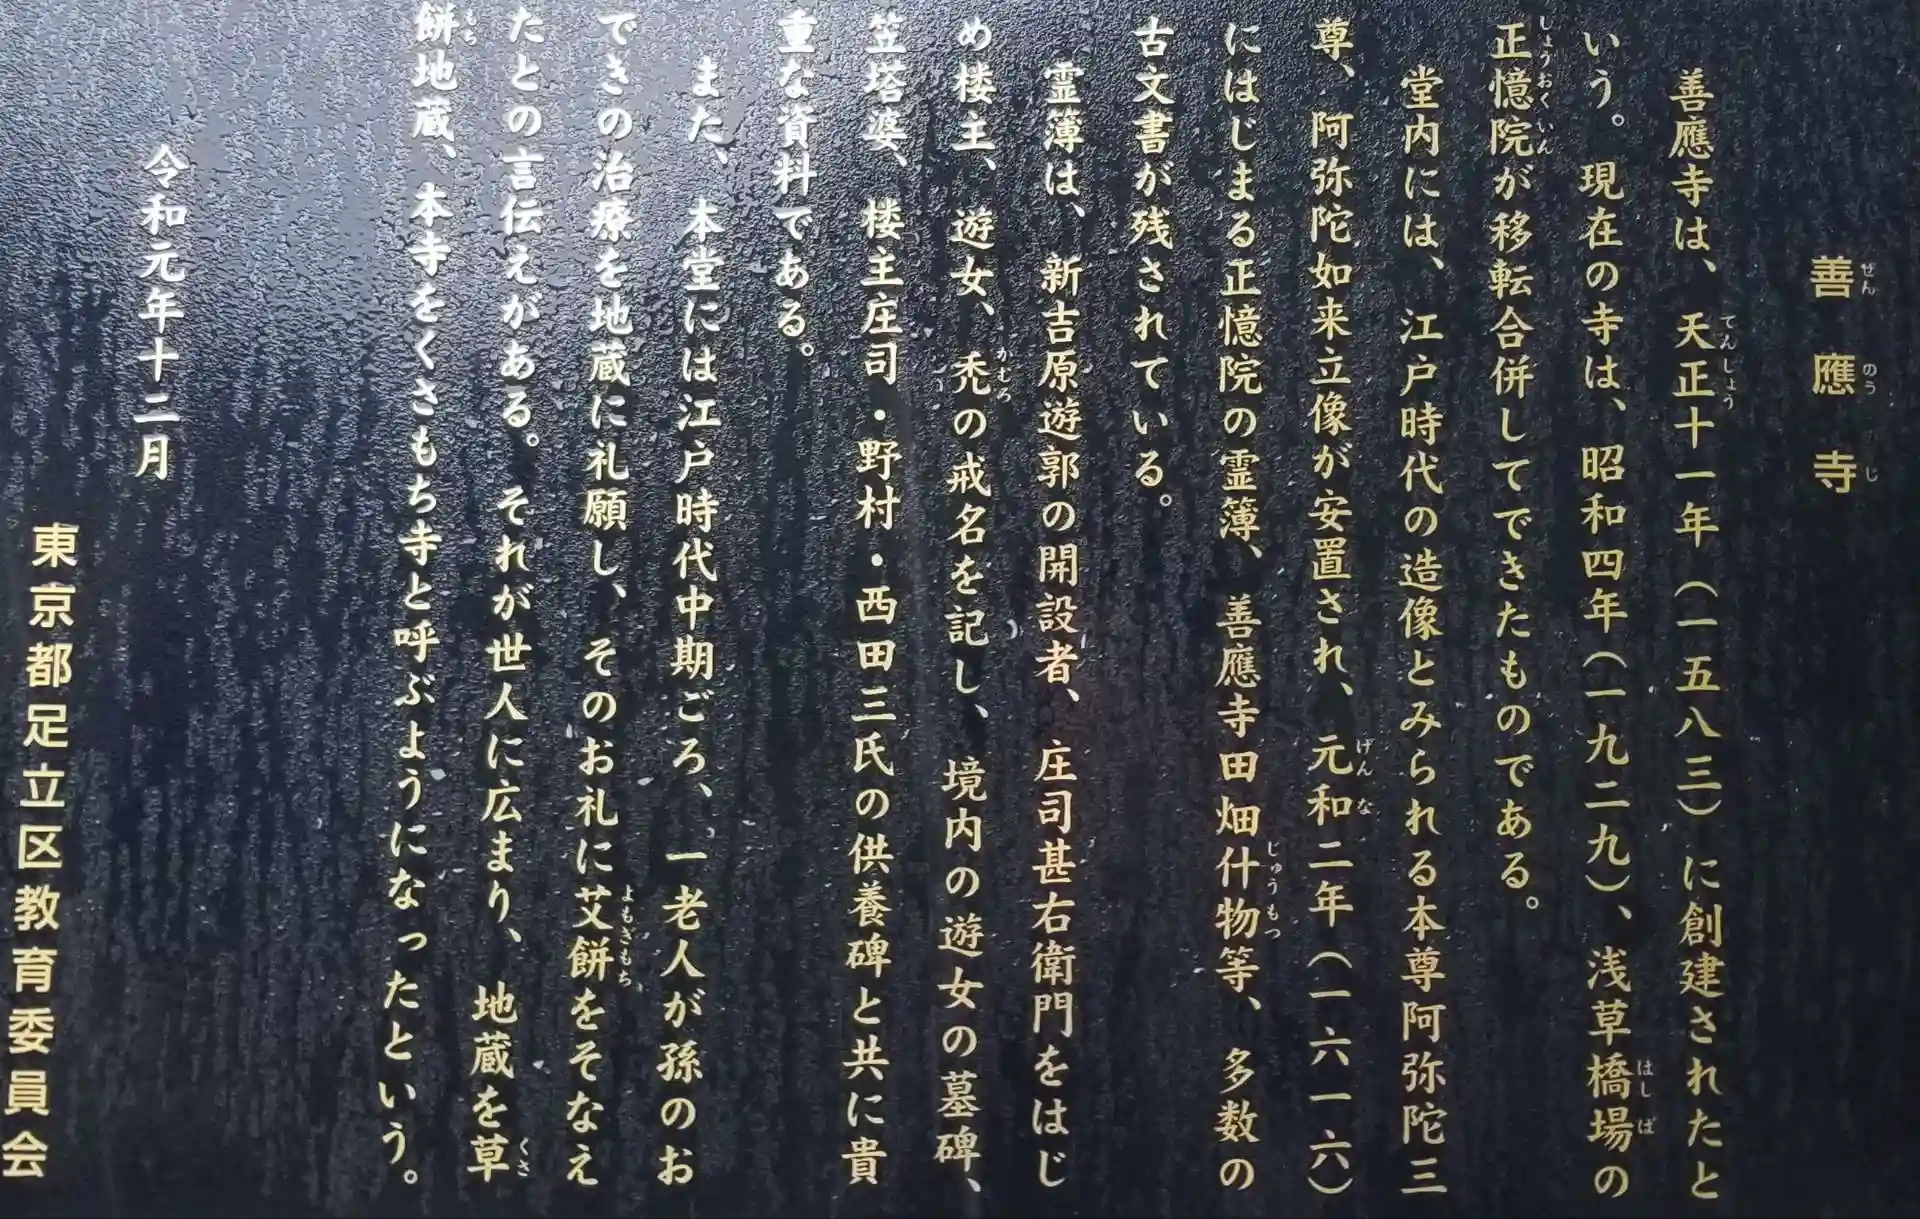 善應寺
ぜんのうじ
善應寺は、天正十一年（一五八三）に創建されたと
てんしょう
いう。現在の寺は、昭和四年（一九二九）、浅草橋場の
はしば
正憶院が移転合併してできたものである。
しょうおくいん
堂内には、江戸時代の造像とみられる本尊阿弥陀三
尊、阿弥陀如来立像が安置され、元和二年（一六一六）
げんな
にはじまる正憶院の霊簿、善應寺田畑什物等、多数の
じゅうもつ
古文書が残されている。
霊簿は、新吉原遊郭の開設者、庄司甚右衛門をはじ
め楼主、遊女、禿の戒名を記し、境内の遊女の墓碑、
かむろ
笠塔婆、楼主庄司・野村・西田三氏の供養碑と共に貴
重な資料である。
また、本堂には江戸時代中期ごろ、一老人が孫のお
できの治療を地蔵に礼願し、そのお礼に艾餅をそなえ
よもぎもち
たとの言伝えがある。それが世人に広まり、地蔵を草
くさ
餅地蔵、本寺をくさもち寺と呼ぶようになったという。
もち
令和元年十二月
東京都足立区教育委員会